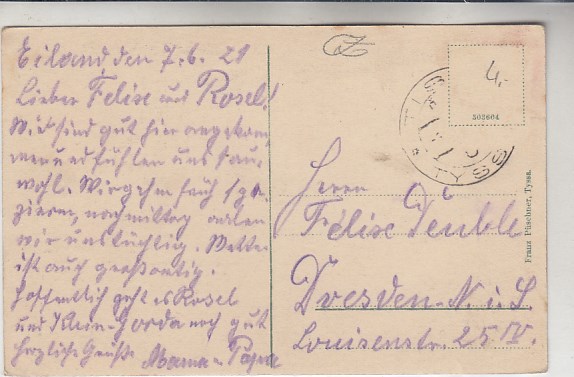 Eiland den 7.6. 21
Lieber Felix und Rosel!
Wir sind gut hier angekom,
men und fühlen uns sau,
wohl. Wir gehn früh spa,
zieren, nachmittag aalen
wir uns tüchtig. Wetter
ist auch großartig.
Hoffentlich geht es Rosel
und Klein-Horda noch gut
Herzliche Grüße Mama u. Papa
4.-
503604
TYSS
Herrn
Felix Deuble
Dresden-N. i. S.
Louisenstr. 25 IV.
Franz Püschner, Tyssa.